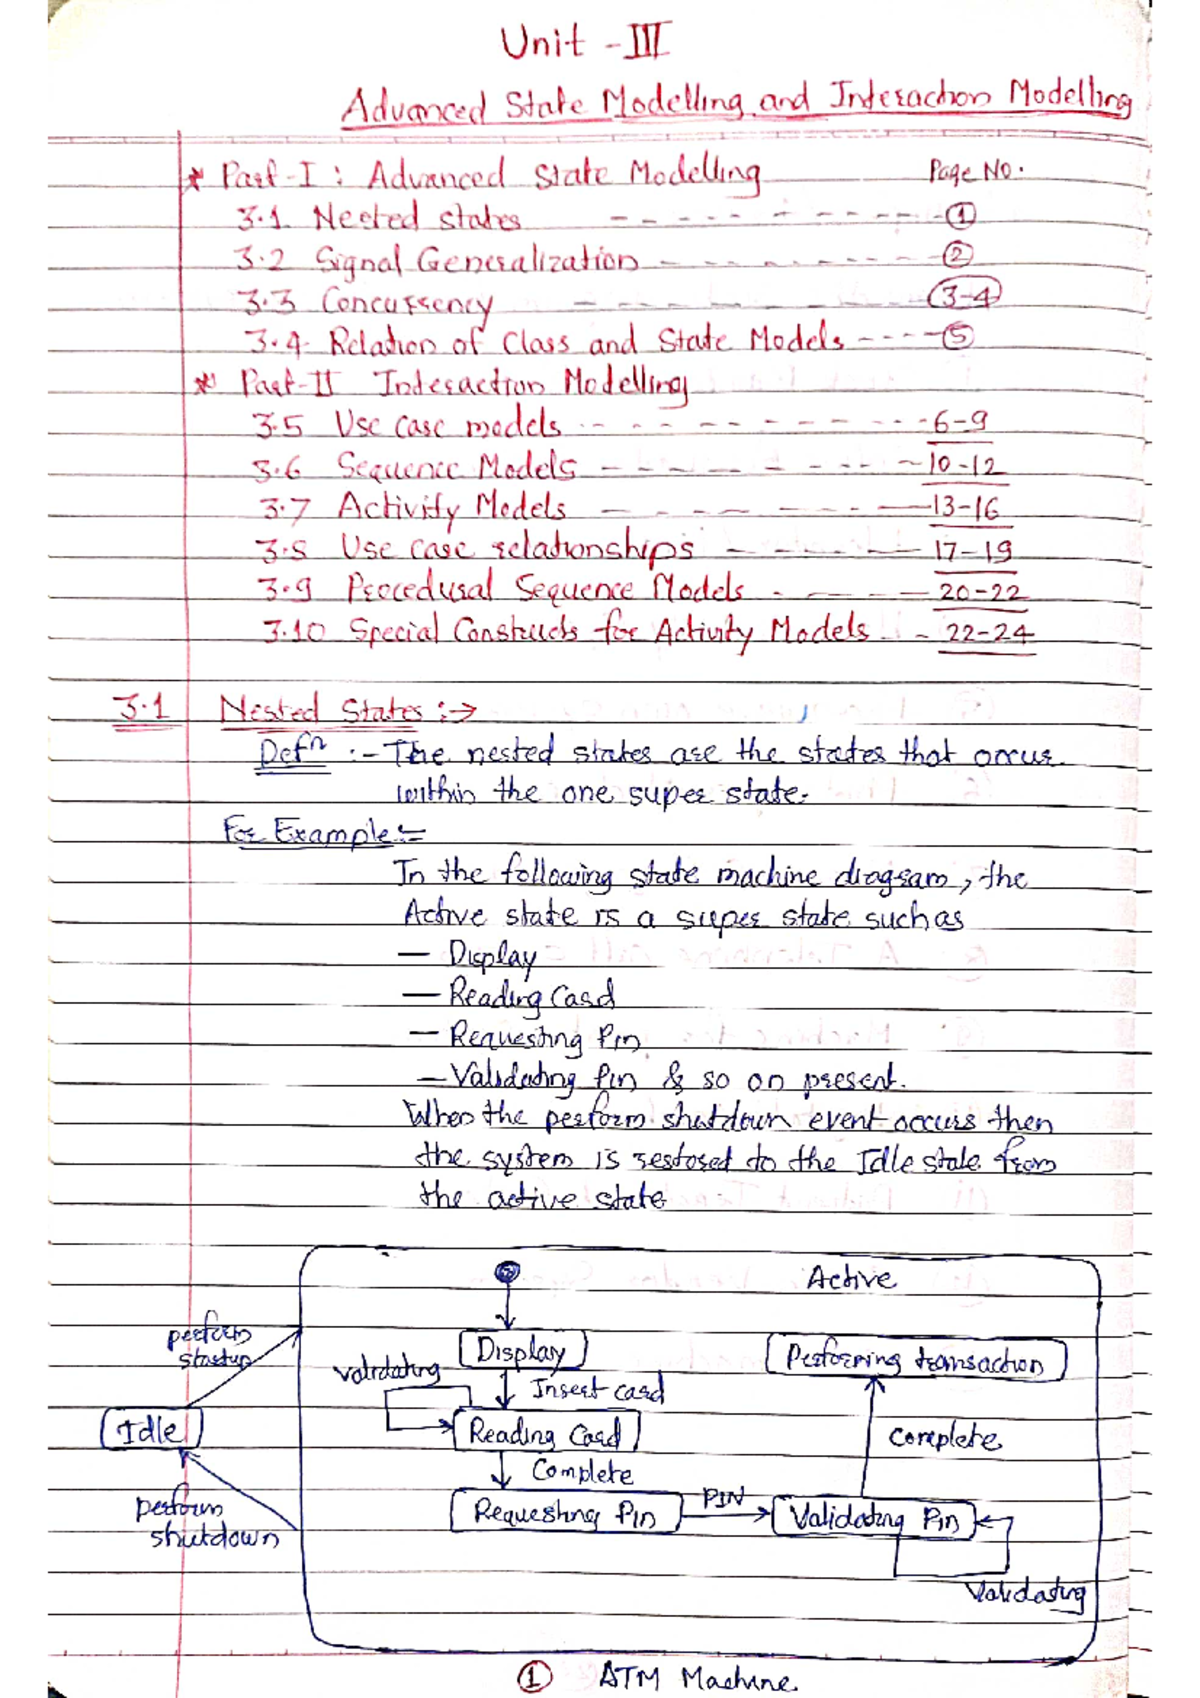 Unit - III
Advanced State Modelling and Interaction Modelling
* Part-I : Advanced State Modelling Page No.
3.1 Nested states - - - - - - - - - - ①
3.2 Signal Generalization - - - - - - - - - ②
3.3 Concurrency - - - - - - - - - (3-4)
3.4 Relation of Class and State Models - - - - ⑤
* Part-II Interaction Modelling
3.5 Use case models - - - - - - - - - - 6-9
3.6 Sequence Models - - - - - - - - - 10-12
3.7 Activity Models - - - - - - - - 13-16
3.8 Use case relationships - - - - - - 17-19
3.9 Procedural Sequence Models - - - - - 20-22
3.10 Special Constructs for Activity Models - - 22-24
3.1 Nested States :→
Defⁿ :- The nested states are the states that occur
within the one super state.
For Example :-
In the following state machine diagram, the
Active state is a super state such as
— Display
— Reading Card
— Requesting Pin
— Validating Pin & so on present.
When the perform shutdown event occurs then
the system is restored to the Idle state from
the active state
Active
perform
startup
Display
Performing transaction
validating
Insert card
Idle
Reading Card
complete
Complete
perform
shutdown
Requesting Pin
PIN
Validating Pin
Validating
① ATM Machine